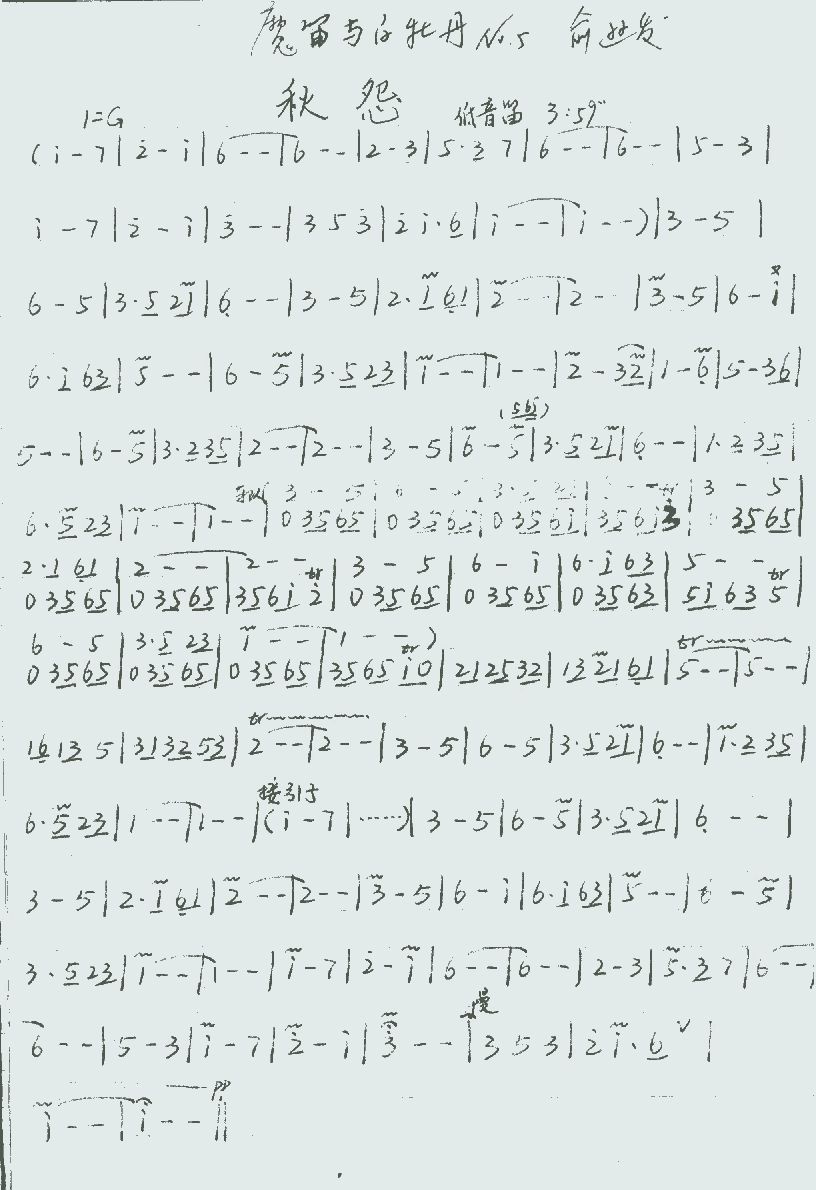 魔笛与白牡丹 No.5 俞逊发
秋怨
1=G 低音笛 3:59"
(i - 7 | 2̇ - i | 6 - - | 6 - - | 2 - 3 | 5· 3 7 | 6 - - | 6 - - | 5 - 3 |
i - 7 | 2̇ - i | 3̇ - - | 3 5 3̇ | 2̇ i· 6 | i - - | i - - ) | 3 - 5 |
6 - 5 | 3· 5 2 1 | 6̣ - - | 3 - 5 | 2· 1 6̣ 1 | 2 - - | 2 - - | 3 - 5 | 6 - i |
6· i 6 3 | 5 - - | 6 - 5 | 3· 5 2 3 | 1 - - | 1 - - | 2 - 3 2 | 1 - 6̣ | 5 - 3 6 |
(5 6 5)
5 - - | 6 - 5 | 3· 2 3 5 | 2 - - | 2 - - | 3 - 5 | 6 - 5 | 3· 5 2 1 | 6̣ - - | 1· 2 3 5 |
3 - 5 | 6 - 5 | 3· 5 2 1 | - - tr | 3 - 5
6· 5 2 3 | 1 - - | 1 - - | 0 3 5 6 5 | 0 3 5 6 5 | 0 3 5 6 i | 3 5 6 i 3 | 3 5 6 5 |
2· 1 6̣ 1 | 2 - - | 2 - - tr | 3 - 5 | 6 - i | 6· i 6 3 | 5 - - tr
0 3 5 6 5 | 0 3 5 6 5 | 3 5 6 i 2̇ | 0 3 5 6 5 | 0 3 5 6 5 | 0 3 5 6 3 | 5 i 6 3 5 |
6 - 5 | 3· 5 2 3 | 1 - - | 1 - - ) tr tr
0 3 5 6 5 | 0 3 5 6 5 | 0 3 5 6 5 | 3 5 6 5 i 0 | 2 1 2 5 3 2 | 1 3 2 1 6̣ 1 | 5 - - | 5 - - |
tr
1 6̣ 1 3 5 | 3 1 3 2 5 3 | 2 - - | 2 - - | 3 - 5 | 6 - 5 | 3· 5 2 1 | 6̣ - - | 1· 2 3 5 |
接引子
6· 5 2 3 | 1 - - | 1 - - | (i - 7 | ……) | 3 - 5 | 6 - 5 | 3· 5 2 1 | 6̣ - - |
3 - 5 | 2· 1 6̣ 1 | 2 - - | 2 - - | 3 - 5 | 6 - i | 6· i 6 3 | 5 - - | 6 - 5 |
3· 5 2 3 | 1 - - | 1 - - | i - 7 | 2̇ - i | 6 - - | 6 - - | 2 - 3 | 5· 3 7 | 6 - - |
慢
6 - - | 5 - 3 | i - 7 | 2̇ - i | 3̇ - - | 3 5 3 | 2̇ i· 6 ∨ |
pp
i - - | i - - ‖